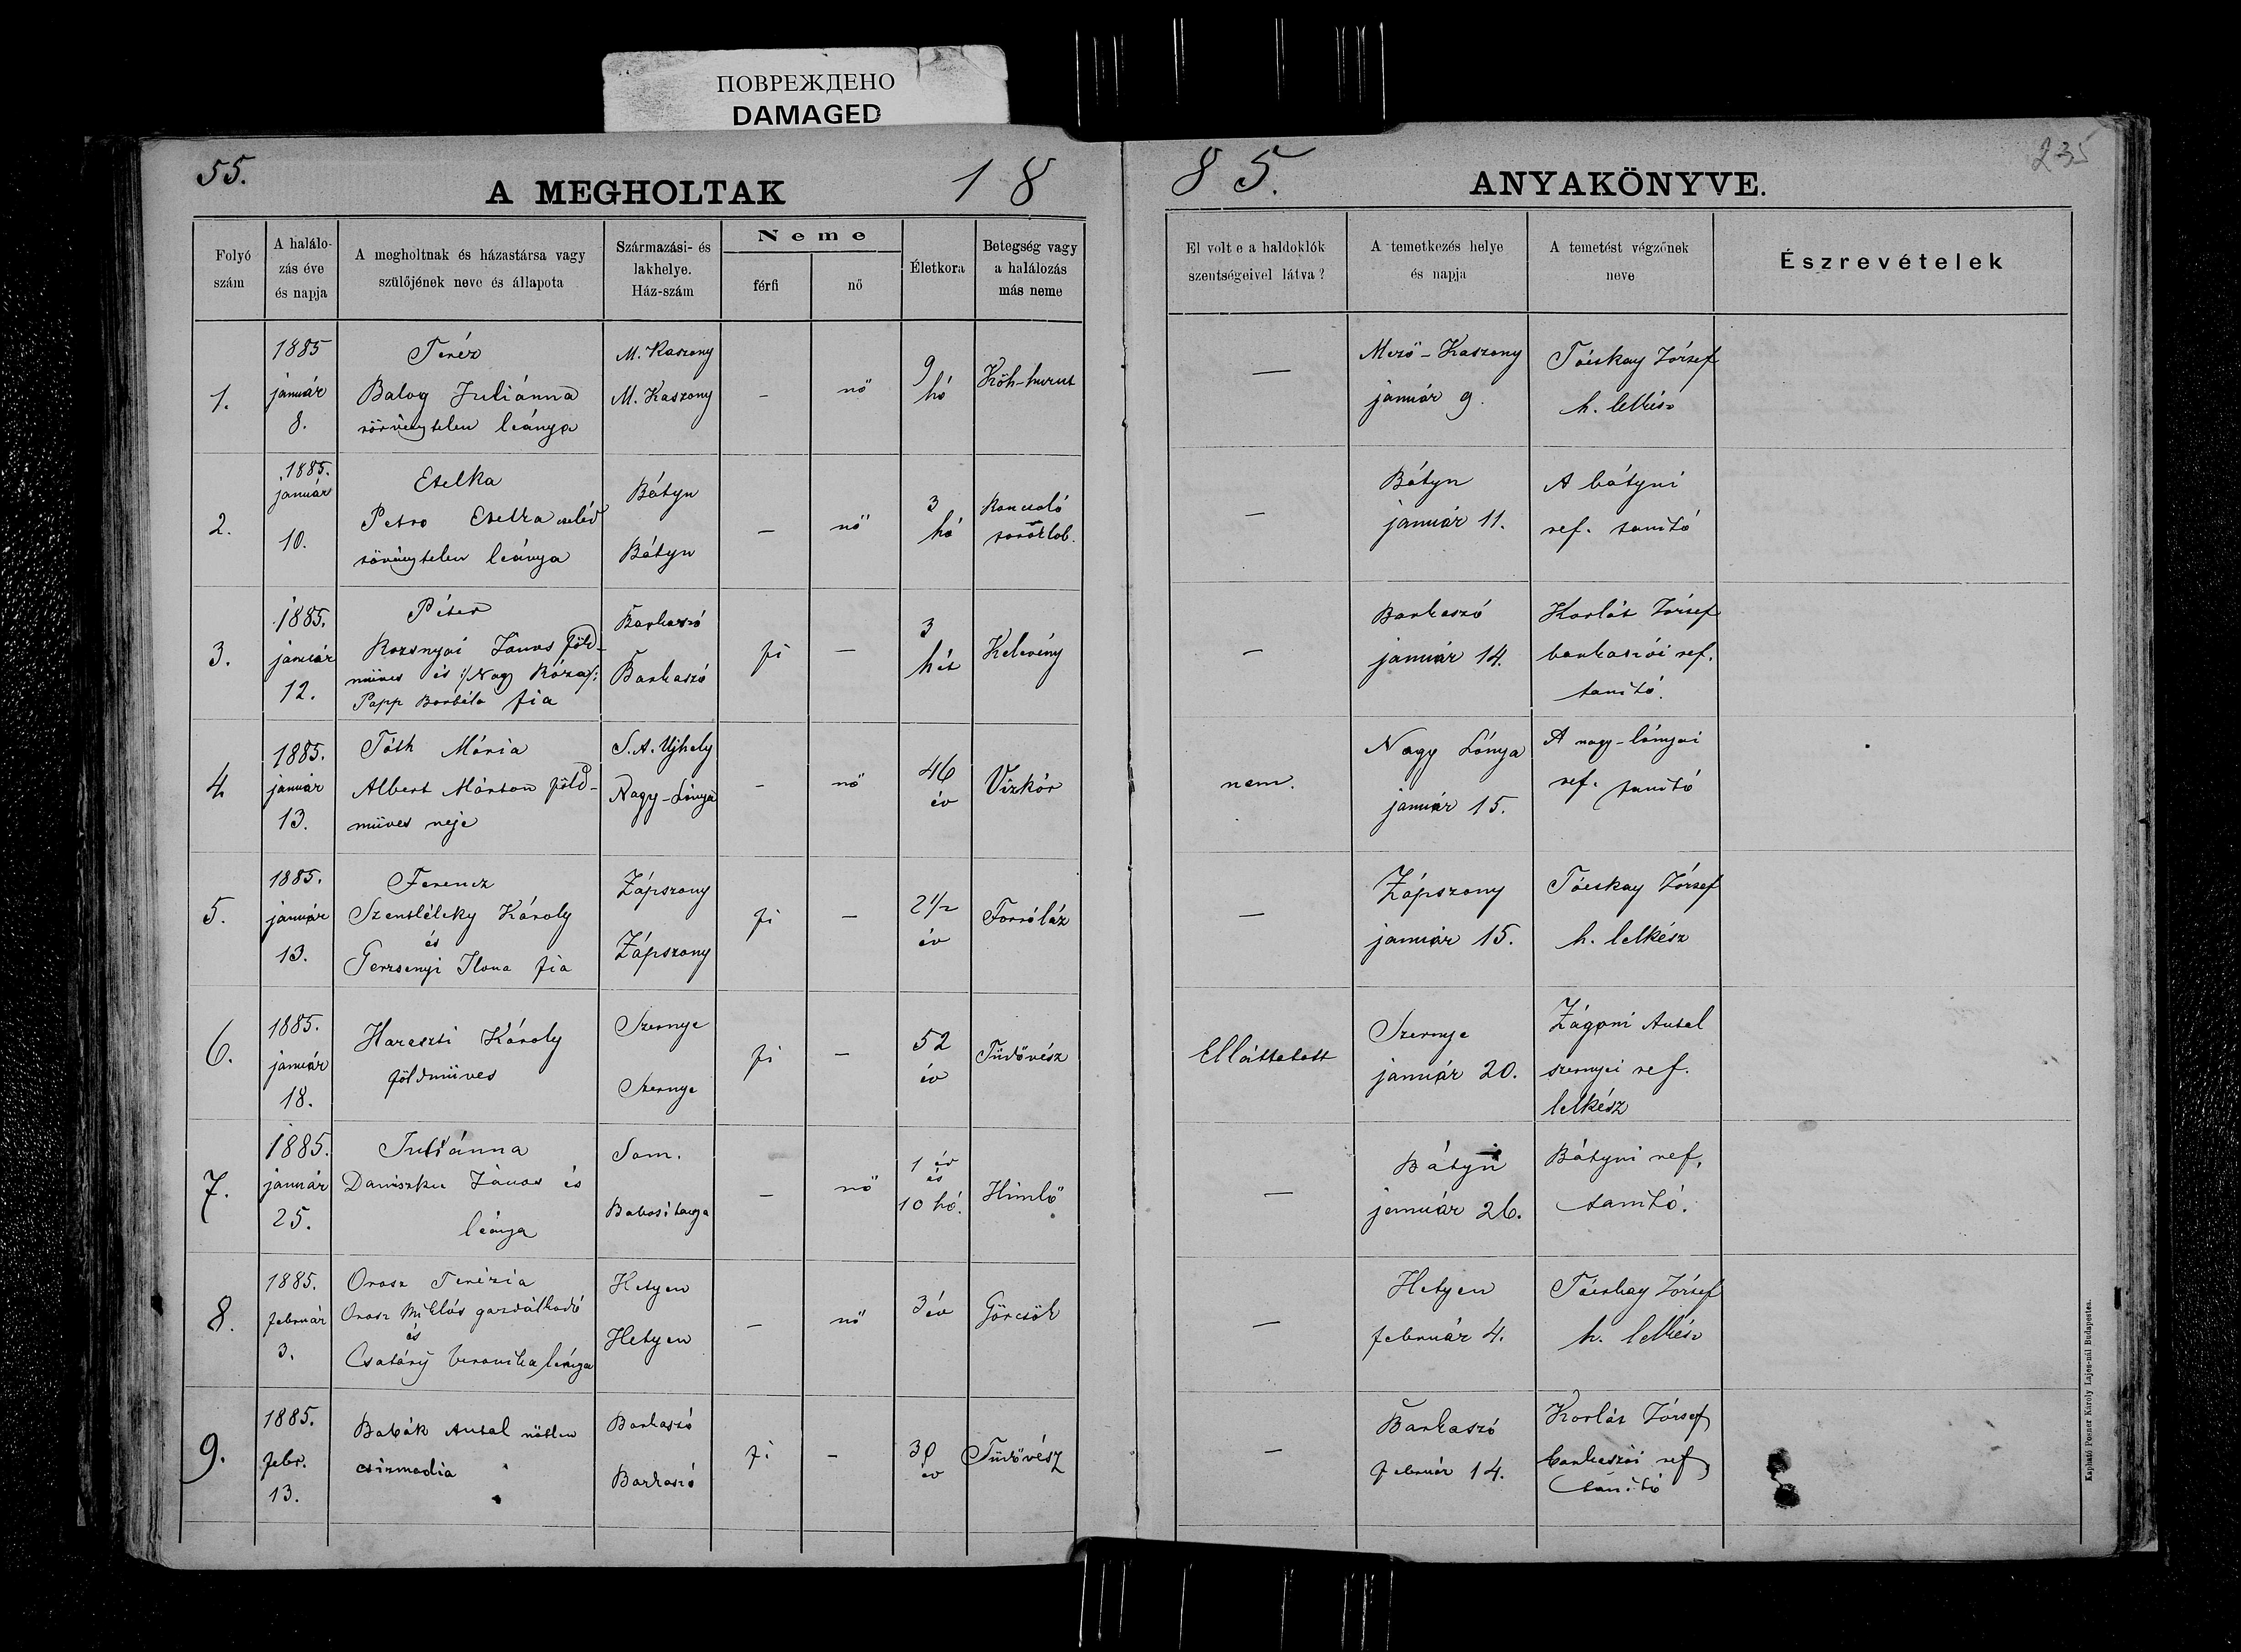 ПОВРЕЖДЕНО
DAMAGED
55.
A MEGHOLTAK
18
85.
ANYAKÖNYVE.
235
Folyó
szám
A halálo-
zás éve
és napja
A megholtnak és házastársa vagy
szülőjének neve és állapota
Származási- és
lakhelye.
Ház-szám
Neme
férfi
nő
Életkora
Betegség vagy
a halálozás
más neme
El volt e a haldoklók
szentségeivel látva?
A temetkezés helye
és napja
A temetést végzőnek
neve
Észrevételek
1.
1885
január
8.
Teréz
Balog Juliánna
törvénytelen leánya
M. Kaszony
M. Kaszony
–
nő
9
hó
Köh-hurut
—
Mező-Kaszony
január 9.
Tóeskay József
h. lelkész
2.
1885.
január
10.
Etelka
Petro Etelka cseléd
törvénytelen leánya
Bátyn
Bátyn
–
nő
3
hó
Roncsoló
toroklob.
–
Bátyn
január 11.
A bátyni
ref. tanító
3.
1885.
január
12.
Péter
Rozsnyai János föld-
műves és /:Nagy Róza:/
Papp Borbála fia
Barkaszó
Barkaszó
fi
–
3
hét
Kelevény
–
Barkaszó
január 14.
Korlát József
barkaszói ref.
tanító.
4.
1885.
január
13.
Tóth Mária
Albert Márton föld-
műves neje
S. A. Ujhely
Nagy-Lónya
–
nő
46
év
Vízkór
nem.
Nagy Lónya
január 15.
A nagy-lónyai
ref. tanító
5.
1885.
január
13.
Ferencz
Szentléleky Károly
és
Gerzsenyi Ilona fia
Zápszony
Zápszony
fi
–
2 1/2
év
Forróláz
—
Zápszony
január 15.
Tóeskay József
h. lelkész
6.
1885.
január
18.
Hareszti Károly
földműves
Szernye
Szernye
fi
–
52
év
Tüdővész
Elláttatott
Szernye
január 20.
Zágoni Antal
szernyei ref.
lelkész
7.
1885.
január
25.
Juliánna
Daniszku János és
leánya
Som.
–
nő
1 év
és
10 hó.
Himlő
—
Bátyn
január 26.
Bátyni ref.
tanító.
8.
1885.
február
3.
Orosz Terézia
Orosz Miklós gazdálkodó
és
Csatáry Veronika leánya
Hetyen
Hetyen
–
nő
3 év
Görcsök
—
Hetyen
február 4.
Tóeskay József
h. lelkész
9.
1885.
febr.
13.
Babák Antal nőtlen
csizmadia
Barkaszó
Barkaszó
fi
–
30
év
Tüdővész
–
Barkaszó
február 14.
Korlát József
barkaszói ref.
tanító
Kapható Posner Károly Lajos-nál Budapesten.